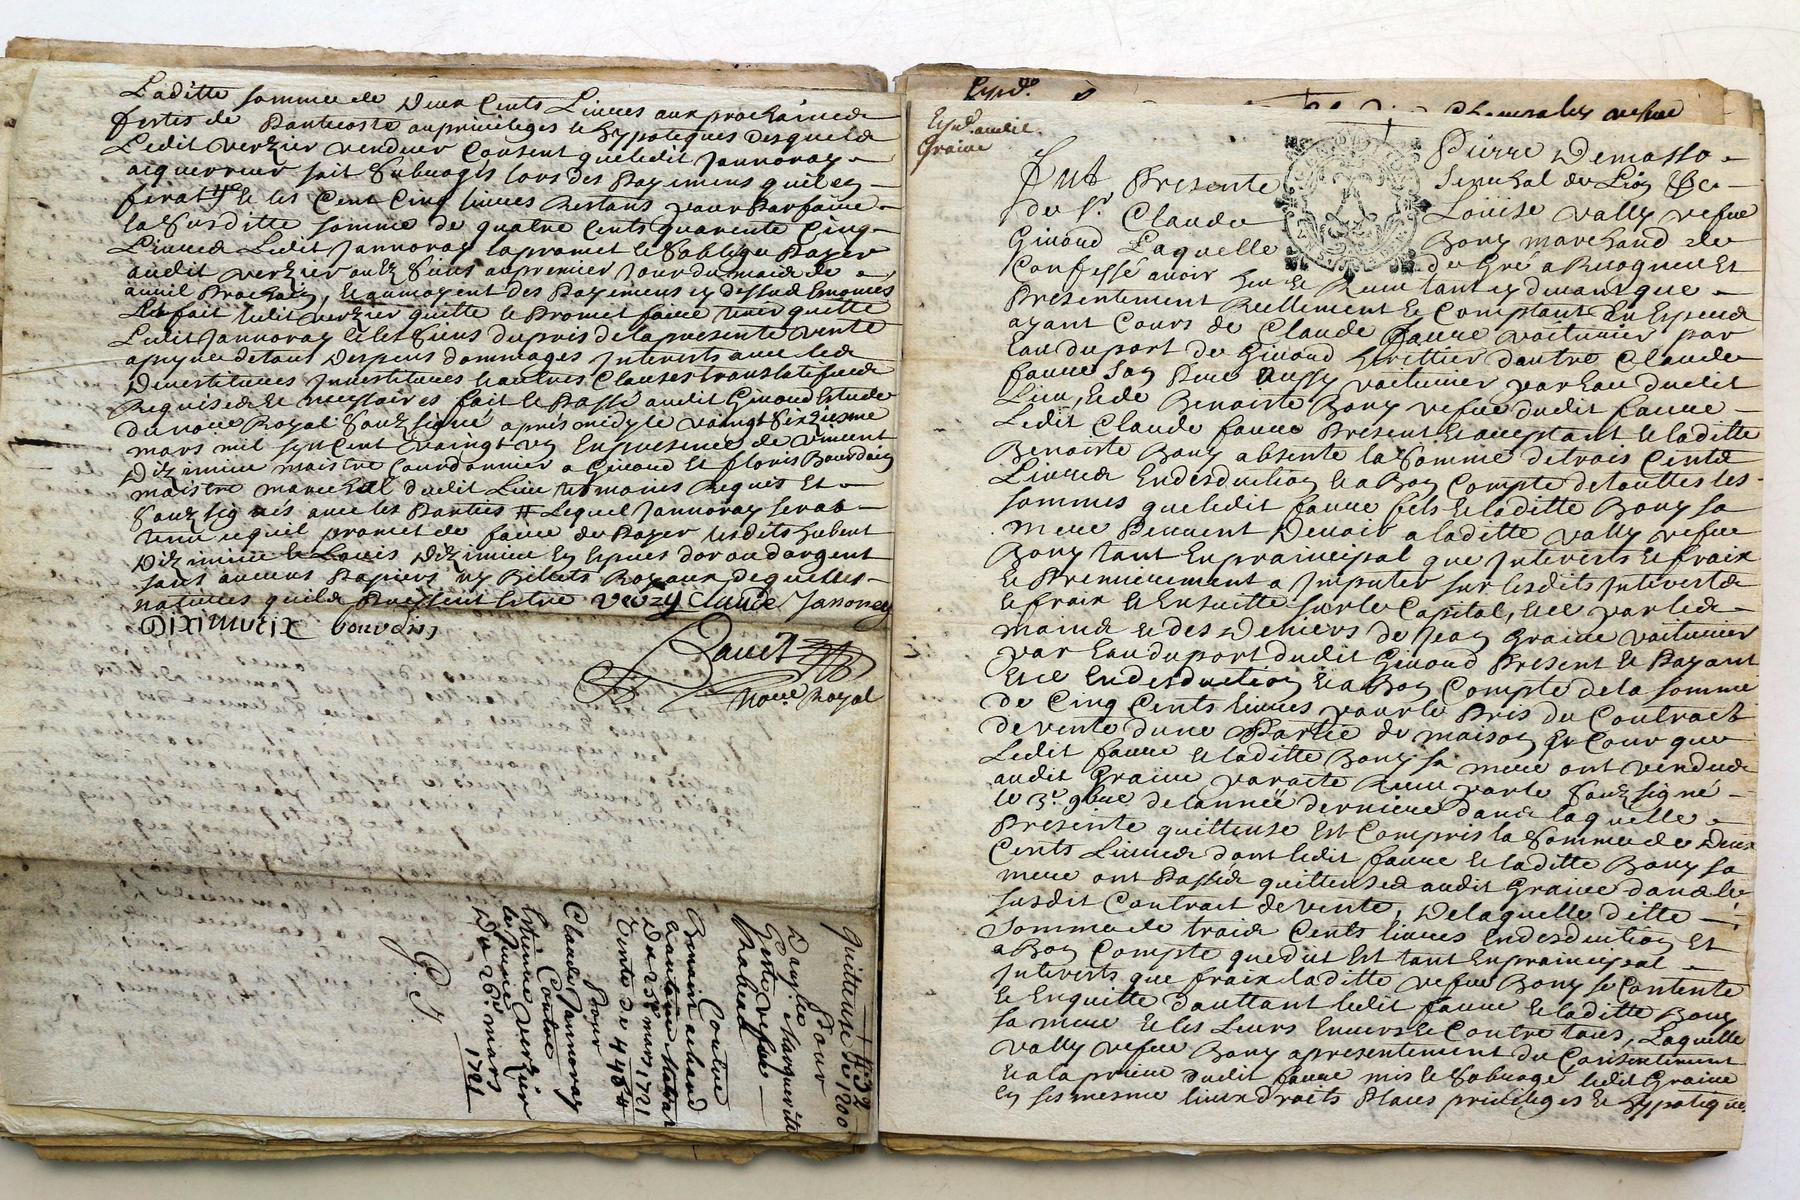 Laditte somme de Deux Cents Livres aux prochaines
festes de Pantecoste au privileges & hypoteques desquels
Ledit verzier vendeur Consent que ledit Jannoray
acquerreur soit Subrogés lors des Payemens quil en
fera & les Cent Cinq livres Restans pour Parfaire
la Susditte somme de quatre Cents quarente Cinq
Livres Ledit Jannoray la promet & Soblige Payer
audit verzier ou es Siens au premier Jour du mois de
avril Prochain, & au moyent des Payemens cy dessus Enoncés
fait ledit verzier quitte & Promet faire tenir quitte
Ledit Jannoray & les Siens du pris de la presente vente
a peyne de tous Despens dommages Interests avec les
Devestitures Investitures & autres Clauses translatifues
Requises & necessaires fait & Passé audit Givord Estude
du no.re Royal Soubsigné après midy le vaingt Sixiesme
mars mil sept Cent vaingt un En presence de vincent
Diximieu maistre Courdonnier a Givord Et floris Bourdin
maistre marechal dudit Lieu temoins Requis Et
Soubsignés avec les Parties # Lequel Jannoray sera
tenu quil promet de faire de Payer lesdits hubert
Diximieu & Louis Diximieu En Especes dor ou dargent
sans aucuns Papiers ny Billets Royaux de quelles
natures quils Puissent Estre verzy Claude Janoray
Diximieux bourdin
no.re Royal
Quittense de 1200
Pour
D.lle Marguerite
veufue
Contre
Du 25e mars 1721
Vente de 445 #
Pour
Claude Jannoray
Contre
Estienne Verzier
Du 26e mars
1721
Expd.
Exp.d audit
Graive
Pierre Demasso
Fut Presente
Senechal de Lion &c.
Louise vally vefue
du S.r Claude
Bony marchand de
Givord Laquelle
de Gré a Recogneu Et
Confessé avoir Eu & Receu tant cy devant que
Presentement Reellement & Comptant En Especes
ayant Cours de Claude faure voiturier par
Eau du port de Givord heritier dautre Claude
faure Son Pere aussy voiturier par Eau dudit
Lieu, & de Benoiste Bony vefue dudit faure
Ledit Claude faure Present & acceptant & laditte
Benoiste Bony absente la Somme de trois Cents
Livres En desduction & a Bon Compte de touttes les
sommes que ledit faure fils & laditte Bony sa
mere Peuvent Devoir a laditte vally vefue
Bony tant En prainsipal que Interests & fraix
& Premierement a Imputer sur lesdits Interests
& fraix & Ensuitte sur le Capital, & ce par les
mains & des Deniers de Jean Graive voiturier
par Eau du port dudit Givord Present & Payant
& ce En desduction & a Bon Compte de la somme
de Cinq Cents livres pour le Pris du Contract
de vente dune Partie de maison Et Cour que
Ledit faure & laditte Bony sa mere ont vendue
audit Graive par acte Receu par le Soubsigné
le 3e 9bre de lannée derniere dans laquelle
Presente quittense Est Compris la Somme de Deux
Cents Livres dont ledit faure & laditte Bony sa
mere ont Passés quittenses audit Graive dans le
susdit Contract de vente, De laquelle ditte
Somme de trois Cents livres En desduction Et
a Bon Compte que dit Est tant En prainsipal
Interests que fraix laditte vefue Bony se Contente
& En quitte Dauttant ledit faure & laditte Bony
sa mere & les Leurs Envers & Contre tous, Laquelle
vally vefue Bony a presentement du Consentement
& a la priere dudit faure mis & Subrogé ledit Graive
En ses mesme lieux droits Places privileges & hypoteques